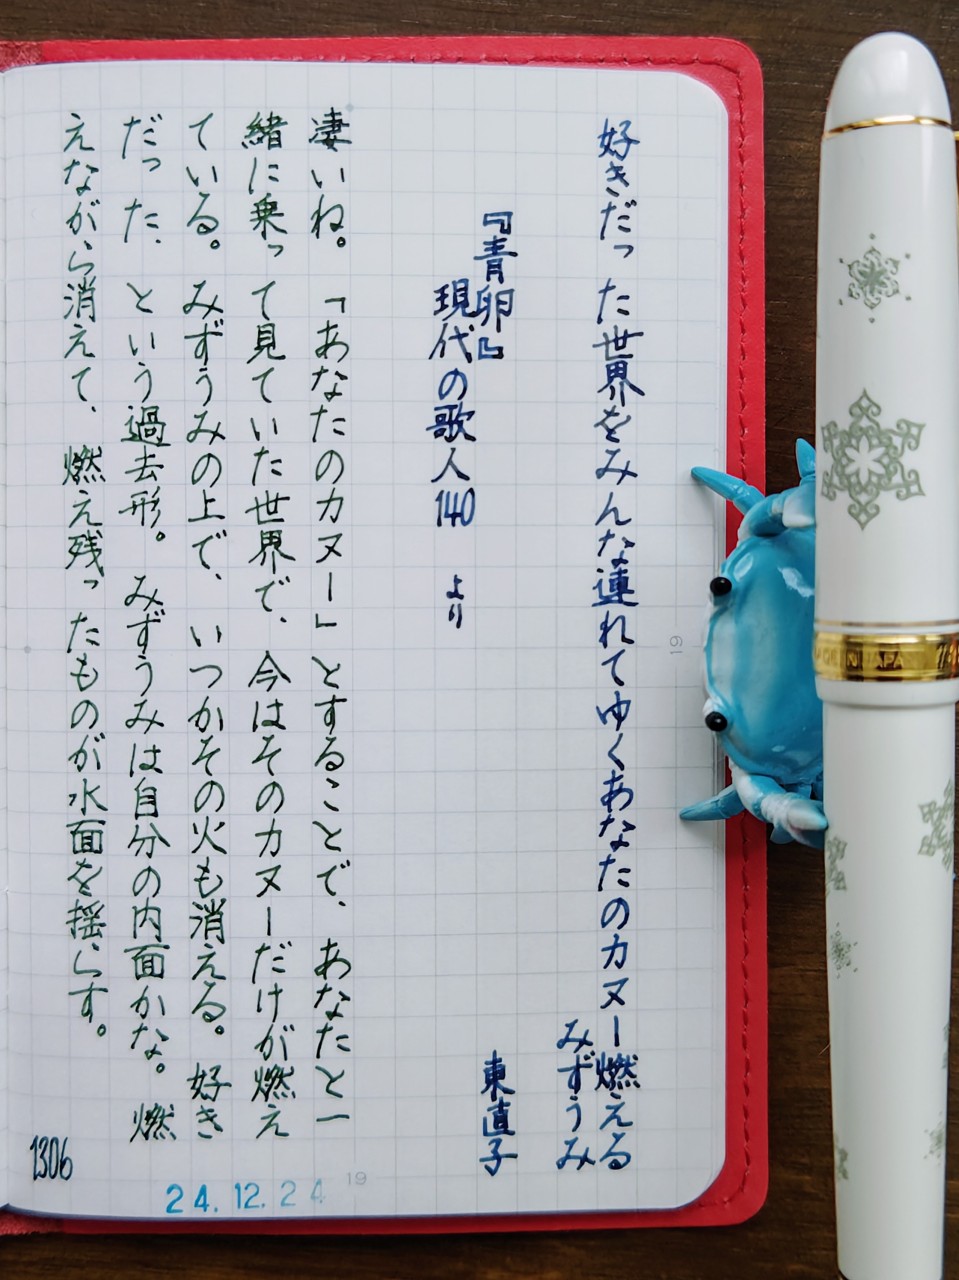 好きだった世界をみんな連れてゆくあなたのカヌー燃える
みずうみ
東直子
『青卵』
現代の歌人140 より
凄いね。「あなたのカヌー」とすることで、あなたと一
緒に乗って見ていた世界で、今はそのカヌーだけが燃え
ている。みずうみの上で、いつかその火も消える。好き
だった、という過去形。みずうみは自分の内面かな。燃
えながら消えて、燃え残ったものが水面を揺らす。
1306
24.12.24
19
19
MADE IN JAPAN